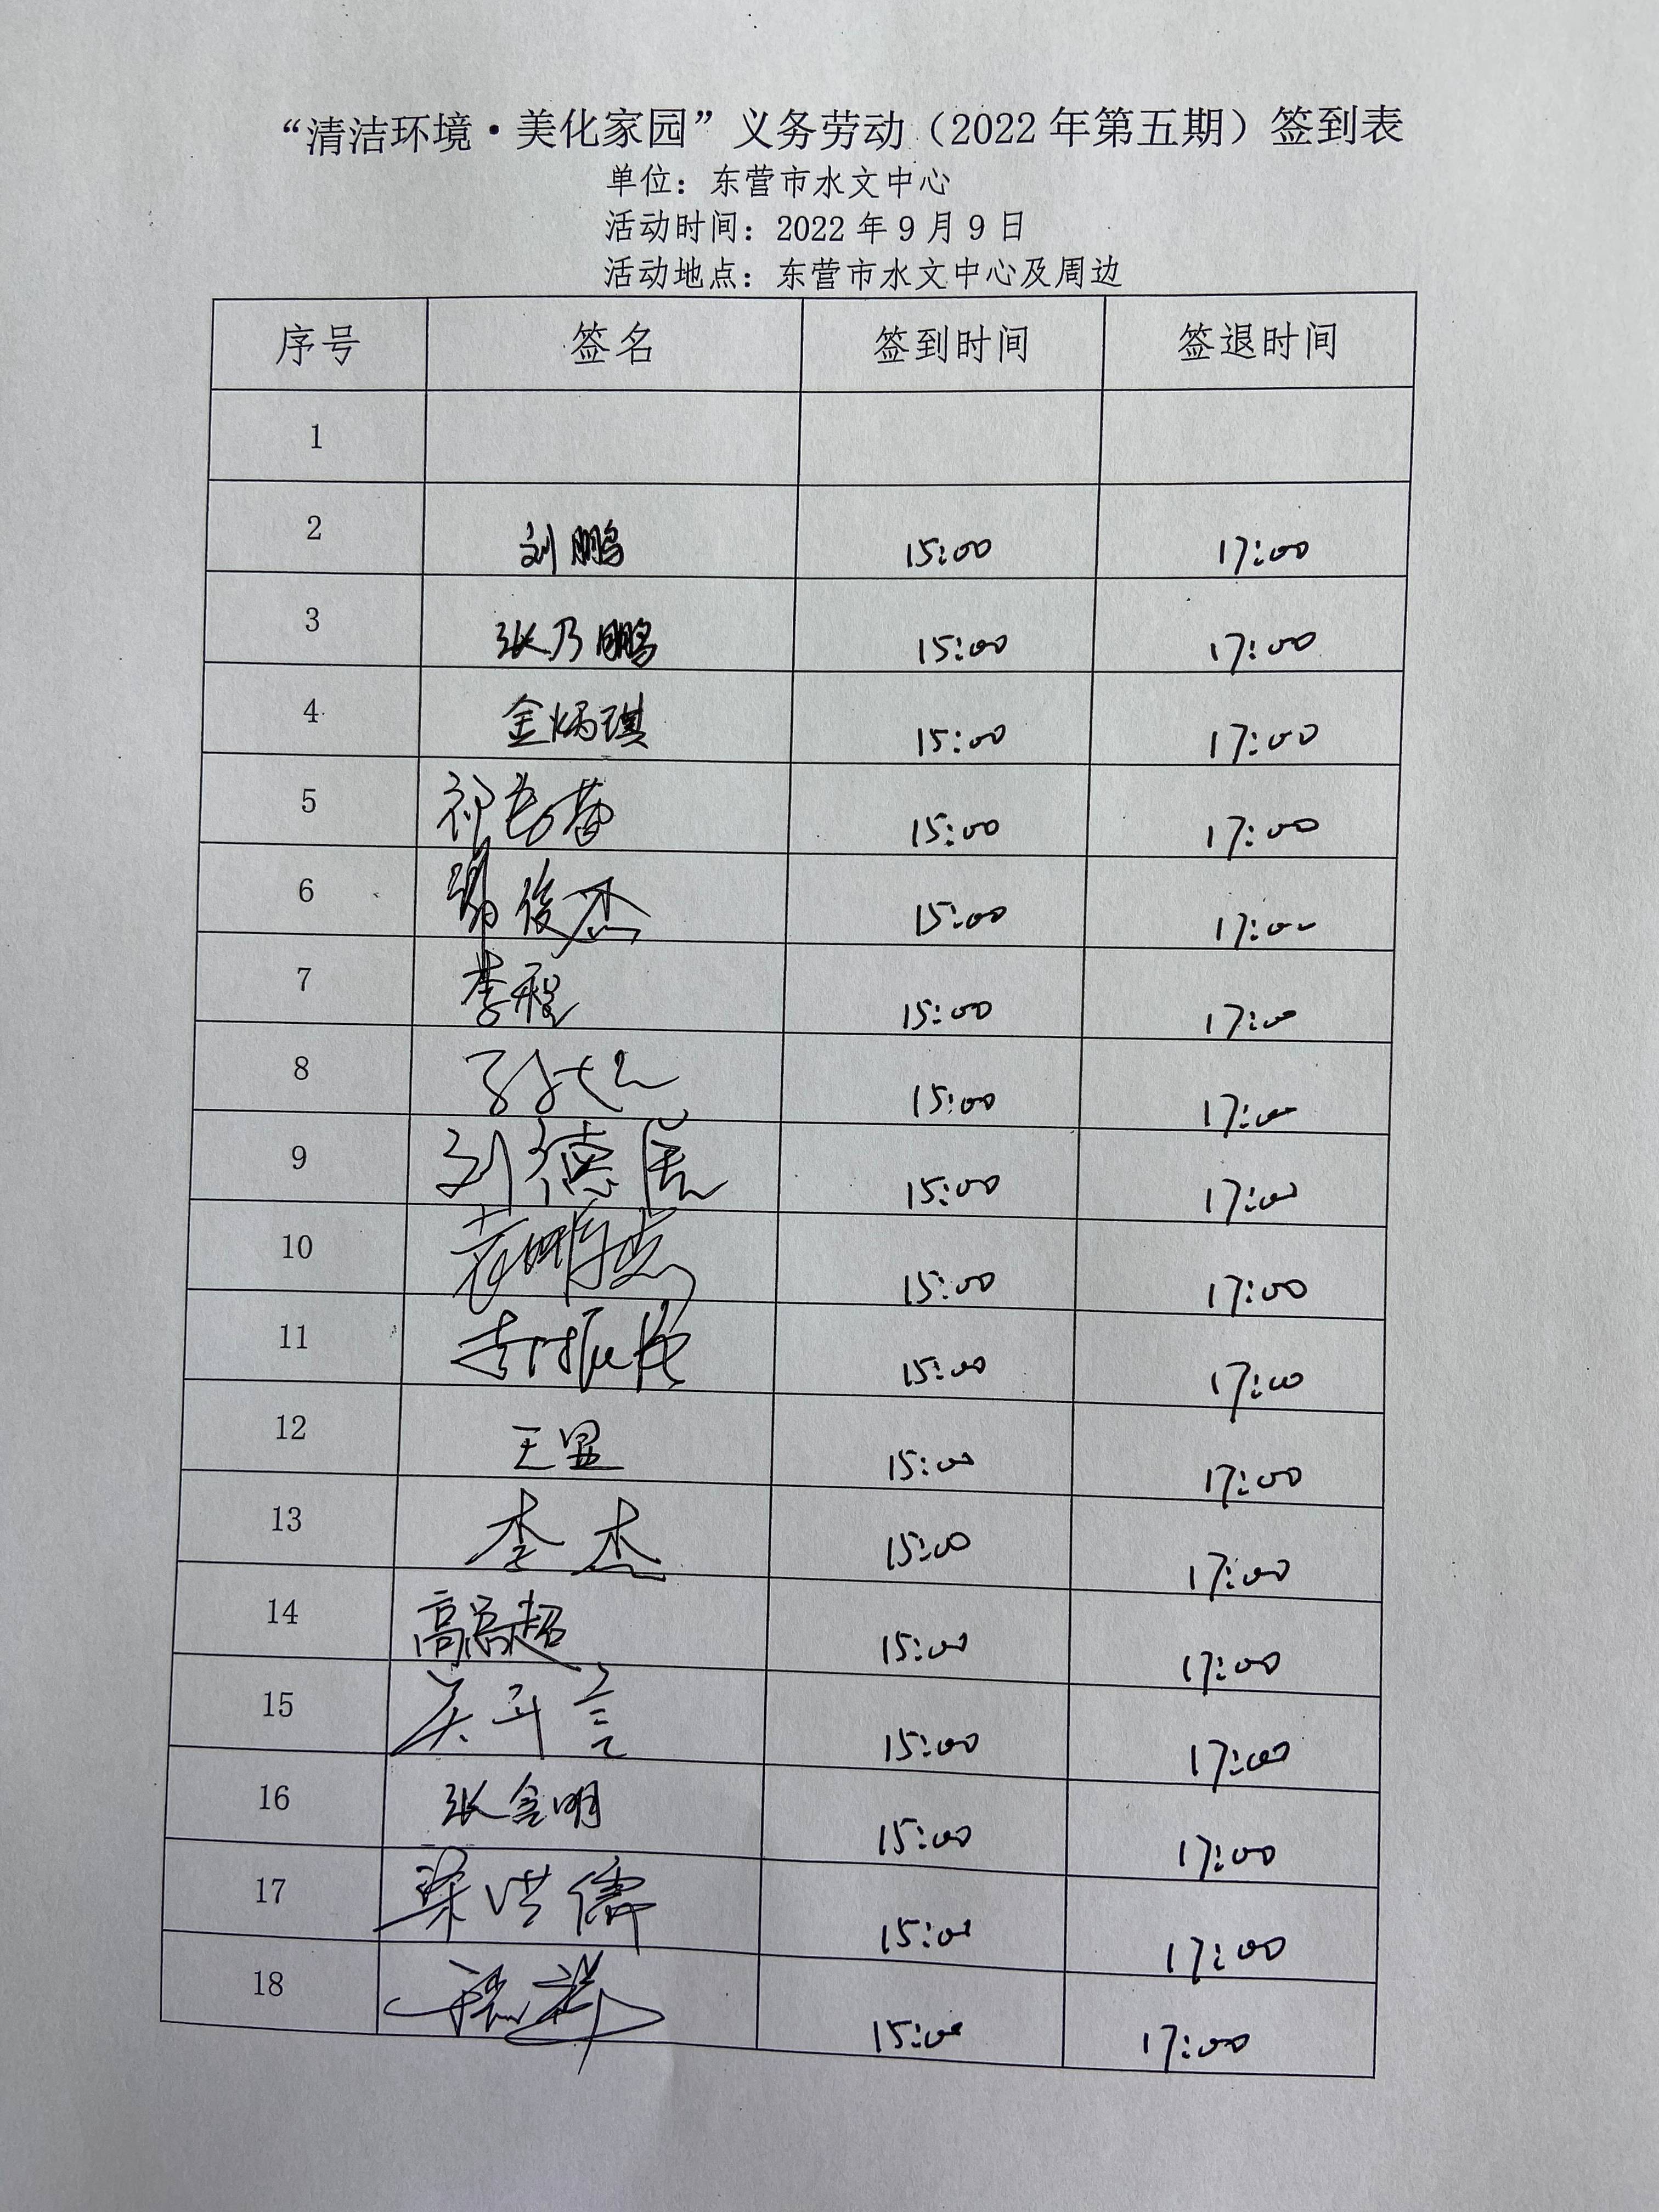 “清洁环境·美化家园”义务劳动（2022年第五期）签到表
单位：东营市水文中心
活动时间：2022年9月9日
活动地点：东营市水文中心及周边
序号 签名 签到时间 签退时间
1
2 刘鹏 15:00 17:00
3 张乃鹏 15:00 17:00
4 金炳琪 15:00 17:00
5 15:00 17:00
6 俊杰 15:00 17:00
7 李程 15:00 17:00
8 15:00 17:00
9 刘德 15:00 17:00
10 15:00 17:00
11 15:00 17:00
12 王 15:00 17:00
13 李杰 15:00 17:00
14 高 超 15:00 17:00
15 15:00 17:00
16 张 明 15:00 17:00
17 梁洪儒 15:00 17:00
18 15:00 17:00